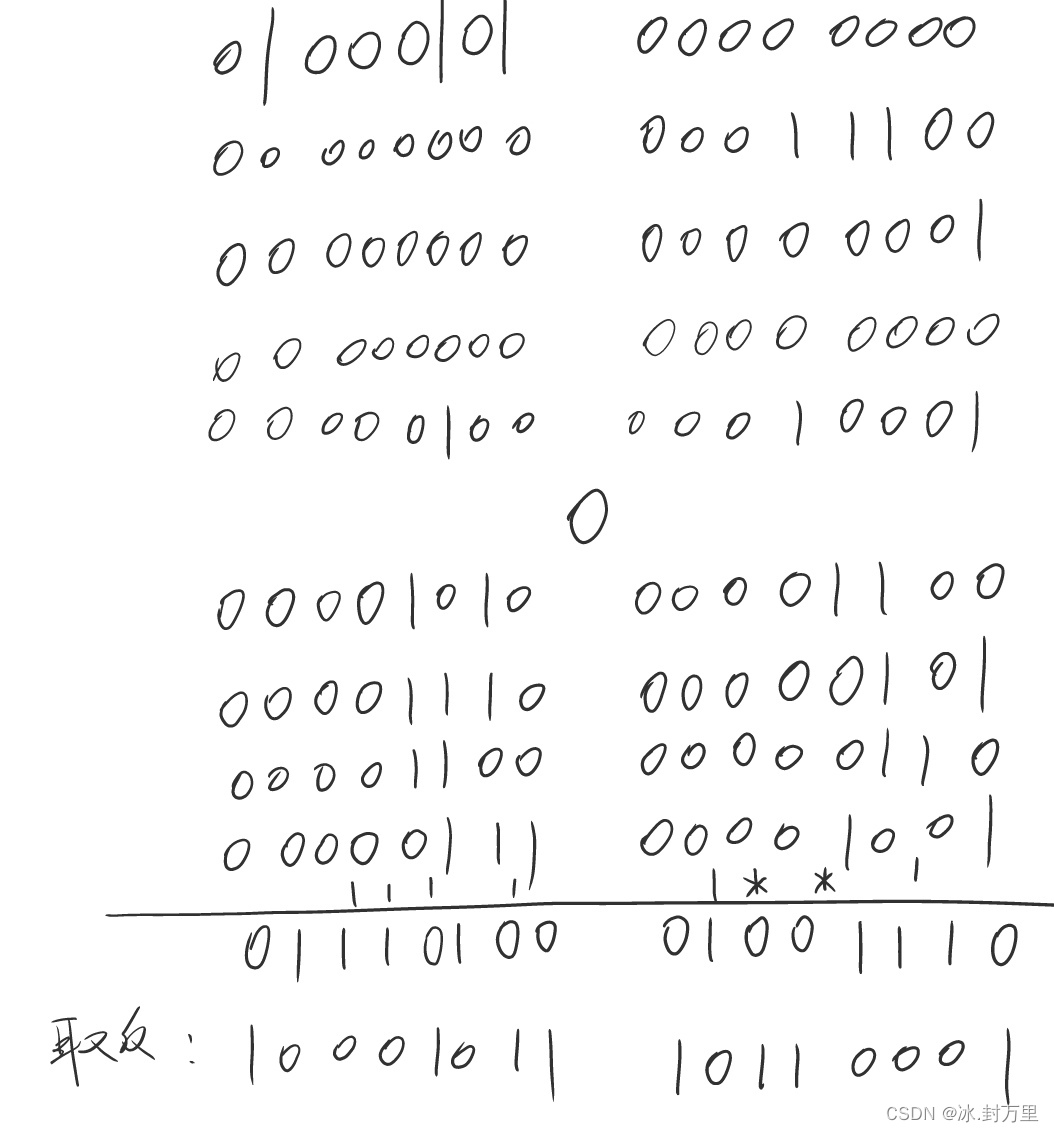 01000101 0000 0000
00 000000 00011100
00 000000 0000 0001
00 000000 0000 0000
00000100 00010001
0
00001010 00001100
00001110 00000101
00001100 00000110
00000111 00001001
1 1 1 1 1 * * 1
01110100 01001110
取反: 10001011 1011 0001
CSDN @冰.封万里